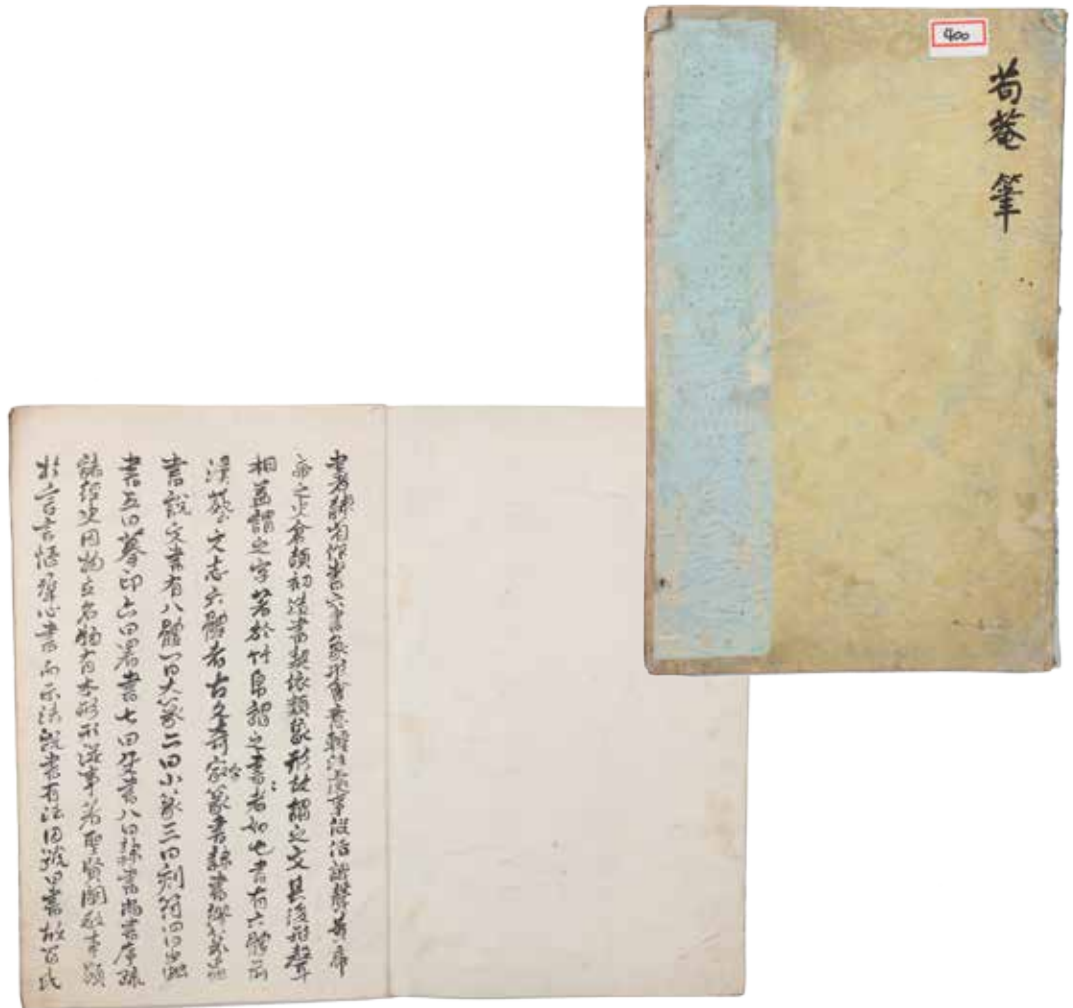 400
苟菴 筆
書考隸首作書六書象形會意轉注處事假借諧聲黃帝
之史倉頡初造書契依類象形故謂之文其後形聲
相益謂之字著於竹帛謂之書〻者如也書有六體前
漢藝文志六體者古文奇字篆書隸書繆篆蟲
書說文書有八體一曰大篆二曰小篆三曰刻符四曰蟲
書五曰摹印六曰署書七曰殳書八曰隸書尚書序疏
諸經史因物立名物有本形形從事著聖賢闡教事顯
於言言愜群心書而示法既書有法因號曰書故百氏